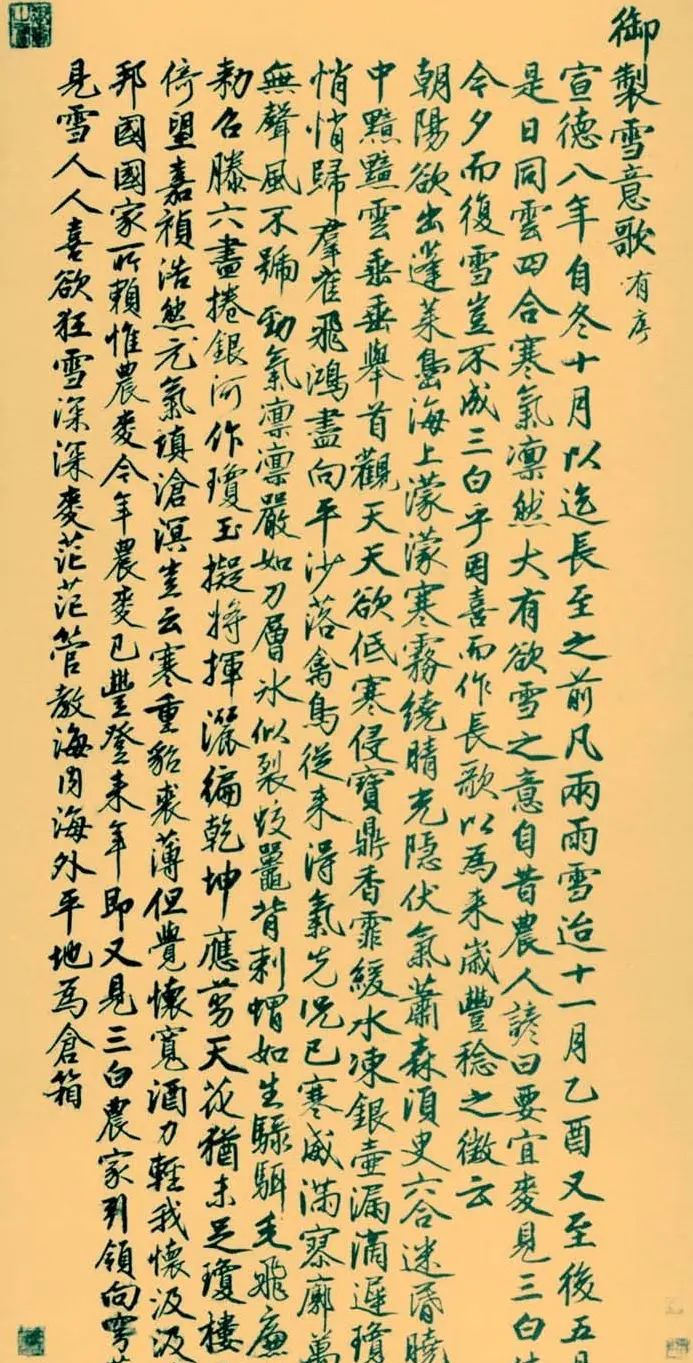 御製雪意歌 有序
宣德八年自冬十月以迄長至之前凡兩雨雪迨十一月乙酉又至後五日
是日同雲四合寒氣凛然大有欲雪之意自昔農人諺曰要宜麥見三白
今夕而復雪豈不成三白乎因喜而作長歌以為來歲豐稔之徵云
朝陽欲出蓬萊島海上濛濛寒霧繞晴光隱伏氣蕭森須臾六合迷昏曉
中黯黯雲垂垂舉首觀天天欲低寒侵寶鼎香霏緩水凍銀壺漏滴遲瓊
悄悄歸群雀飛鴻盡向平沙落禽鳥從來得氣先況已寒威滿寥廓萬
無聲風不號勁氣凛凛嚴如刀層冰似裂蛟鼉背刺蝟如生騄駬毛飛廉
勅召滕六盡捲銀河作瓊玉擬將揮灑編乾坤應剪天花猶未足瓊樓
倚望嘉禎浩然元氣填滄溟豈云寒重貂裘薄但覺懷寬酒力輕我懷汲汲
邦國國家所賴惟農麥今年農麥已豐登來年即又見三白農家引領向穹
見雪人人喜欲狂雪深深麥茫茫管教海內海外平地為倉箱